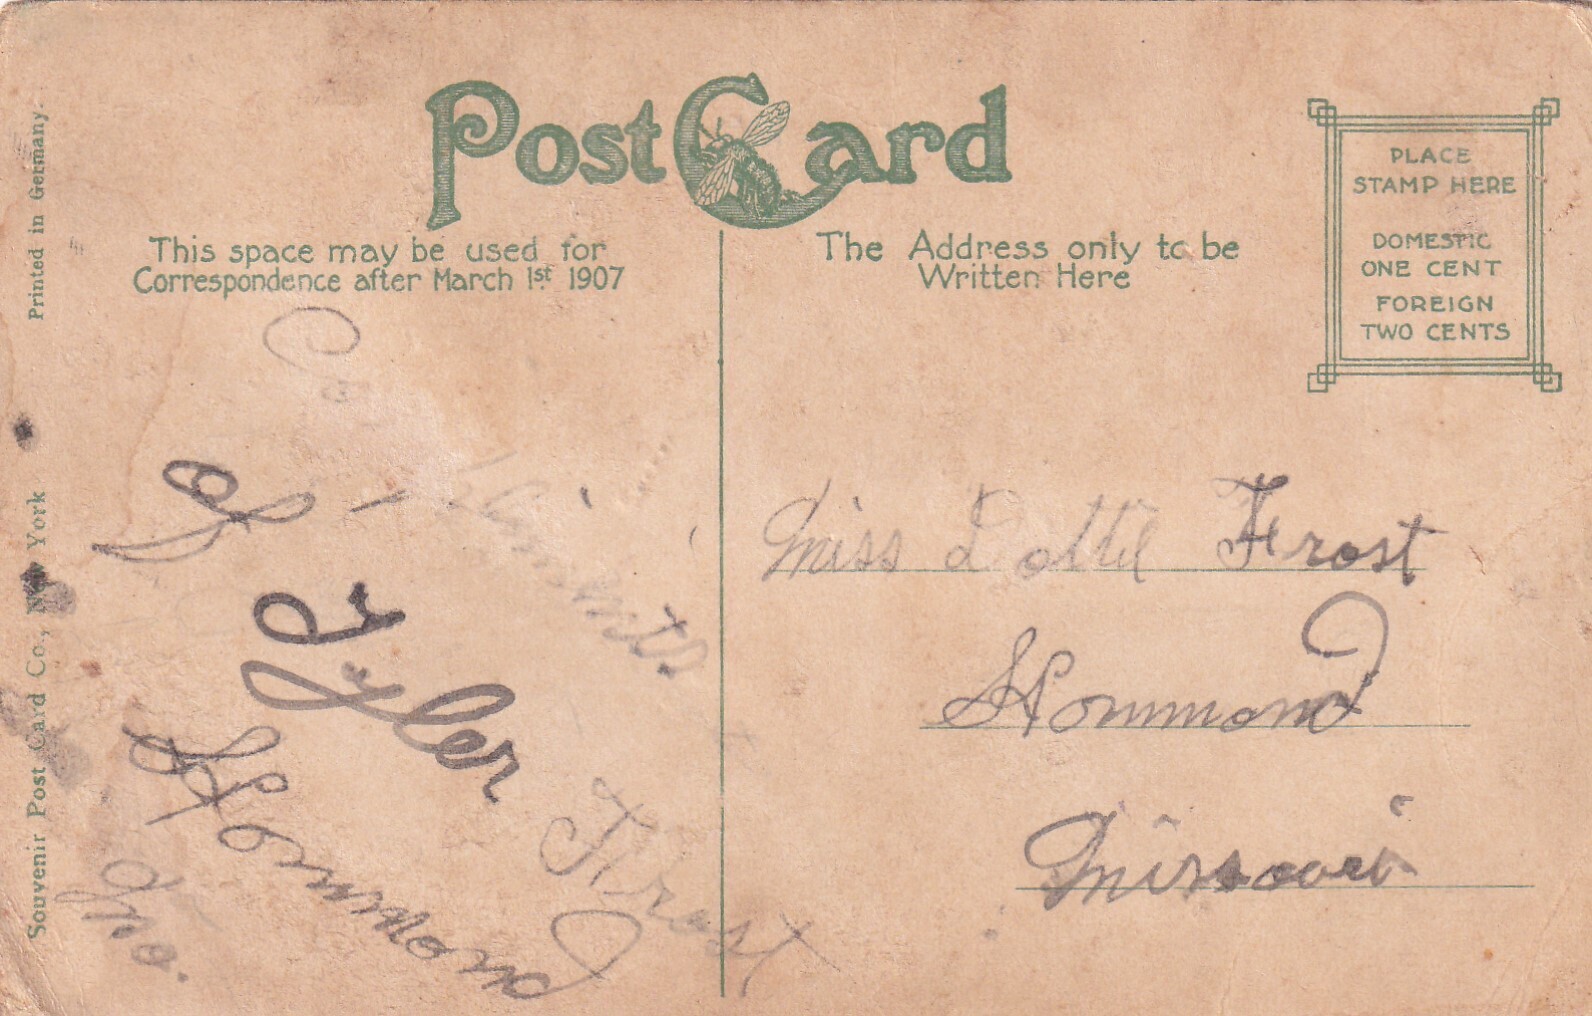 Post Card
This space may be used for
Correspondence after March 1st 1907
The Address only to be
Written Here
PLACE
STAMP HERE
DOMESTIC
ONE CENT
FOREIGN
TWO CENTS
Printed in Germany.
Souvenir Post Card Co., New York
Tyler Frost
Hommond
Mo.
Miss Dottie Frost
Hommond
Missouri